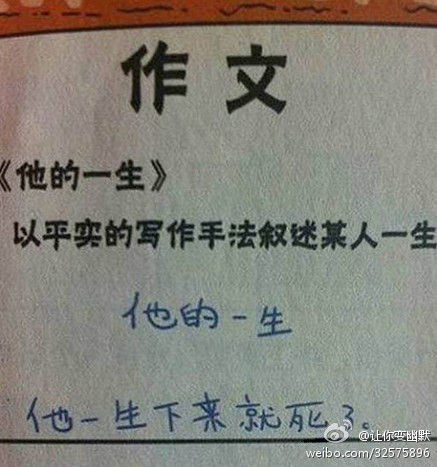 作文
《他的一生》
以平实的写作手法叙述某人一生
他的一生
他一生下来就死了。
@让你变幽默
weibo.com/32575896